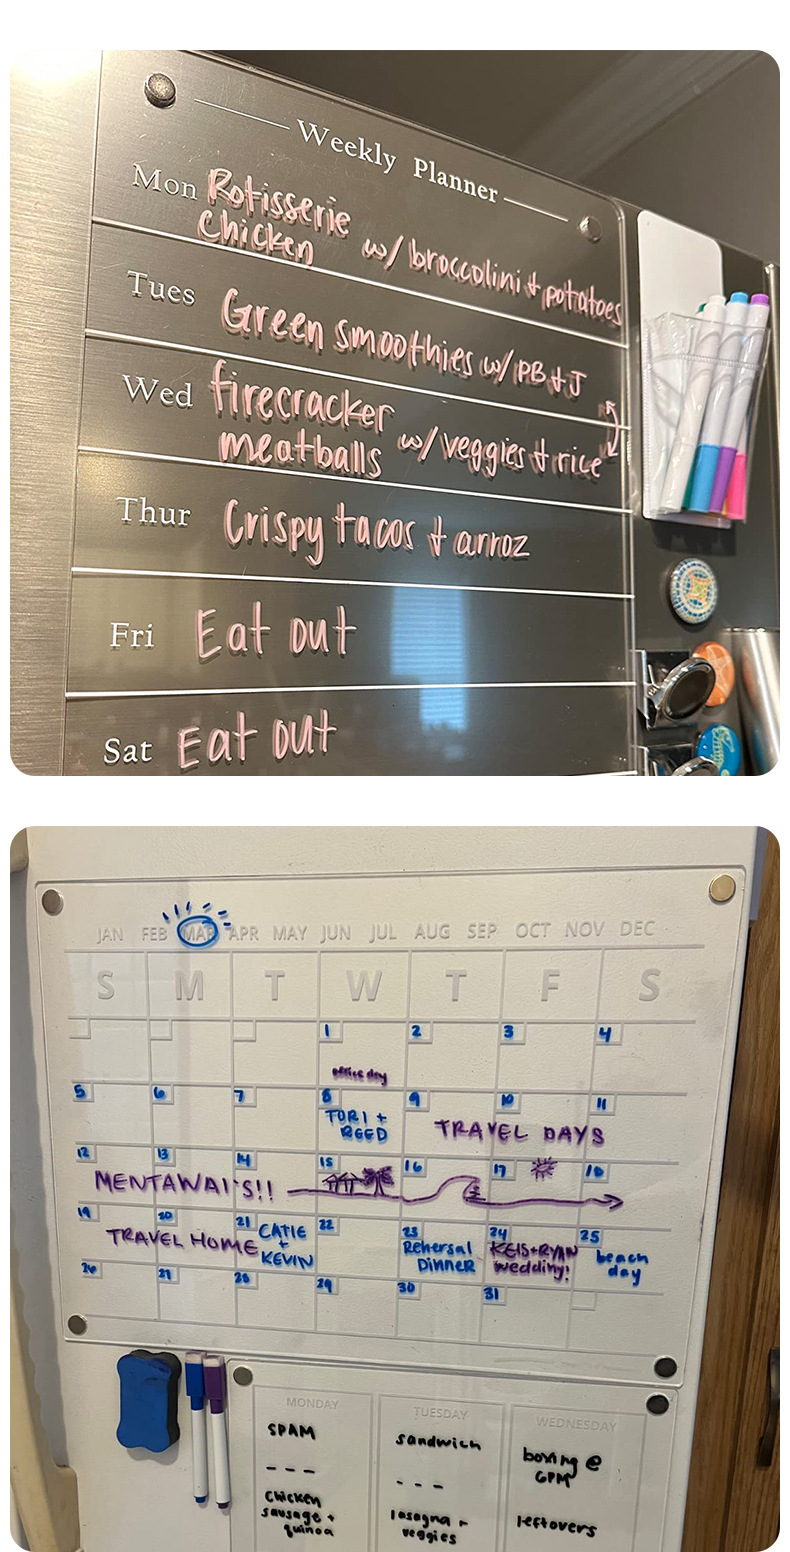 Weekly Planner
Mon Rotisserie chicken w/ broccolini + potatoes
Tues Green smoothies w/ PB + J
Wed firecracker meatballs w/ veggies + rice
Thur Crispy tacos + arroz
Fri Eat out
Sat Eat out
JAN FEB MAR APR MAY JUN JUL AUG SEP OCT NOV DEC
S M T W T F S
1 2 3 4
office day
5 6 7 8 9 10 11
TORI + REED
TRAVEL DAYS
12 13 14 15 16 17 18
MENTAWAI'S!!
19 20 21 22 23 24 25
TRAVEL HOME
CATIE + KEVIN
Rehersal DINNER
KEIS+RYAN wedding!
beach day
26 27 28 29 30 31
MONDAY
SPAM
---
chicken sausage + quinoa
TUESDAY
sandwich
---
lasagna + veggies
WEDNESDAY
boxing @ 6PM
leftovers